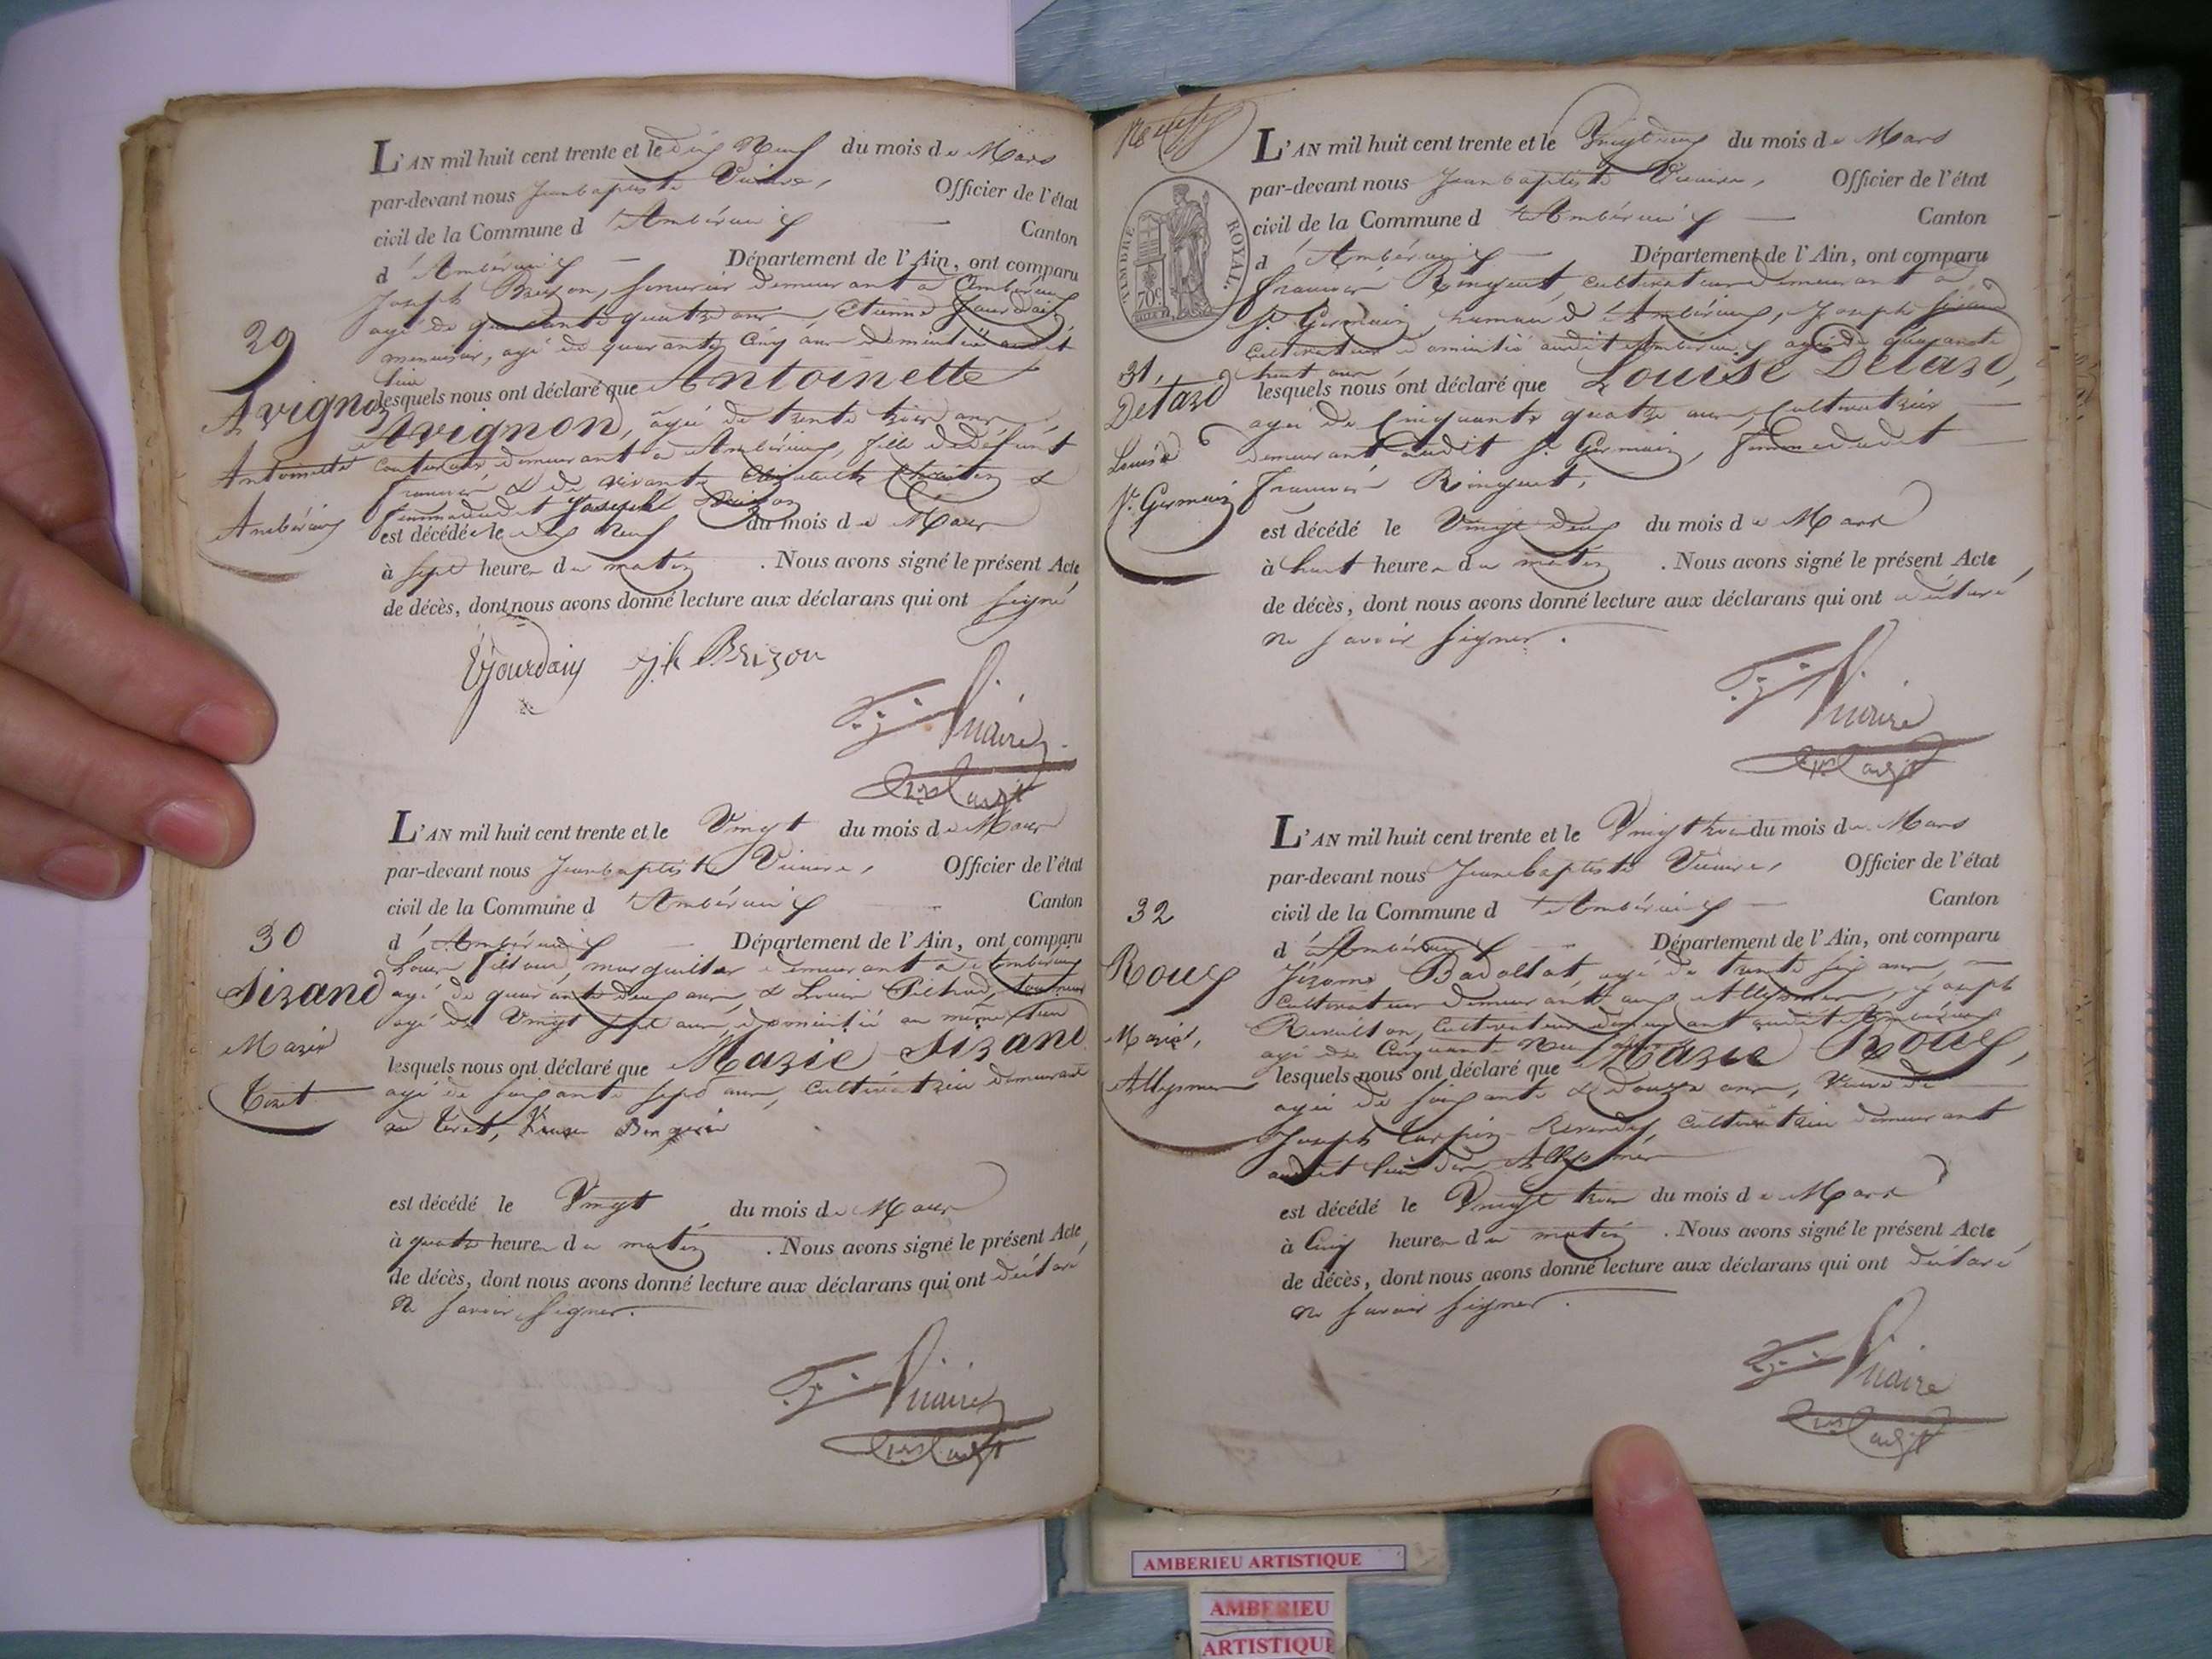 L'AN mil huit cent trente et le dix Neuf du mois de Mars
par-devant nous Jean baptiste Vicaire, Officier de l'état
civil de la Commune d'Ambérieux Canton
d'Ambérieux Département de l'Ain, ont comparu
Joseph Brizon, demeurant à Ambérieux
agé de quarante quatre ans, Etienne Jourdain
menuisier, agé de quarante Cinq ans domicilié audit
lieu
29
lesquels nous ont déclaré que Antoinette
Avignon
Avignon, agée de trente trois ans,
Antoinette
Couturière demeurant à Ambérieux, fille de défunt
François & de vivante Christin &
Ambérieux
femme dudit Joseph Brizon
est décédée le dix Neuf du mois de Mars
à Sept heures du matin . Nous avons signé le présent Acte
de décès, dont nous avons donné lecture aux déclarans qui ont Signé
E Jourdain Jh Brizon
Vicaire
L'AN mil huit cent trente et le Vingt du mois de Mars
par-devant nous Jean baptiste Vicaire, Officier de l'état
civil de la Commune d'Ambérieux Canton
30
d'Ambérieux Département de l'Ain, ont comparu
Louis marguillier demeurant à Ambérieux
Sirand
agé de quarante deux ans, & Louis
agé de Vingt Sept ans, domicilié au même lieu
Marie
lesquels nous ont déclaré que Marie Sirand
Tiret
agée de soixante sept ans, Cultivatrice demeurant
au Tiret, Veuve
est décédé le Vingt du mois de Mars
à quatre heures du matin . Nous avons signé le présent Acte
de décès, dont nous avons donné lecture aux déclarans qui ont déclaré
ne savoir signer.
Vicaire
TIMBRE ROYAL.
70c
L'AN mil huit cent trente et le Vingt deux du mois de Mars
par-devant nous Jean baptiste Vicaire, Officier de l'état
civil de la Commune d'Ambérieux Canton
d'Ambérieux Département de l'Ain, ont comparu
François Ringuet, Cultivateur demeurant à
St Germain, hameau d'Ambérieux, Joseph
Cultivateur domicilié audit Ambérieux agé de quarante
31,
huit ans,
Detard
lesquels nous ont déclaré que Louise Detard,
agée de Cinquante quatre ans, Cultivatrice
Louise
demeurant audit St Germain, femme dudit
St Germain
François Ringuet,
est décédé le Vingt deux du mois de Mars
à huit heures du matin . Nous avons signé le présent Acte
de décès, dont nous avons donné lecture aux déclarans qui ont déclaré
ne savoir signer.
Vicaire
L'AN mil huit cent trente et le Vingt trois du mois de Mars
par-devant nous Jean baptiste Vicaire, Officier de l'état
32
civil de la Commune d'Ambérieux Canton
d'Ambérieux Département de l'Ain, ont comparu
Roux
Jérome Badollat, agé de trente six ans,
Cultivateur demeurant aux Allymes, Joseph
Marie,
Cultivateur demeurant audit Ambérieux
agé de Cinquante Neuf ans
Allymes
lesquels nous ont déclaré que Marie Roux,
agée de soixante & douze ans, Veuve de
Joseph Cultivatrice demeurant
audit lieu des Allymes
est décédé le Vingt trois du mois de Mars
à Cinq heures du matin . Nous avons signé le présent Acte
de décès, dont nous avons donné lecture aux déclarans qui ont déclaré
ne savoir signer.
Vicaire
AMBERIEU ARTISTIQUE
AMBERIEU
ARTISTIQUE